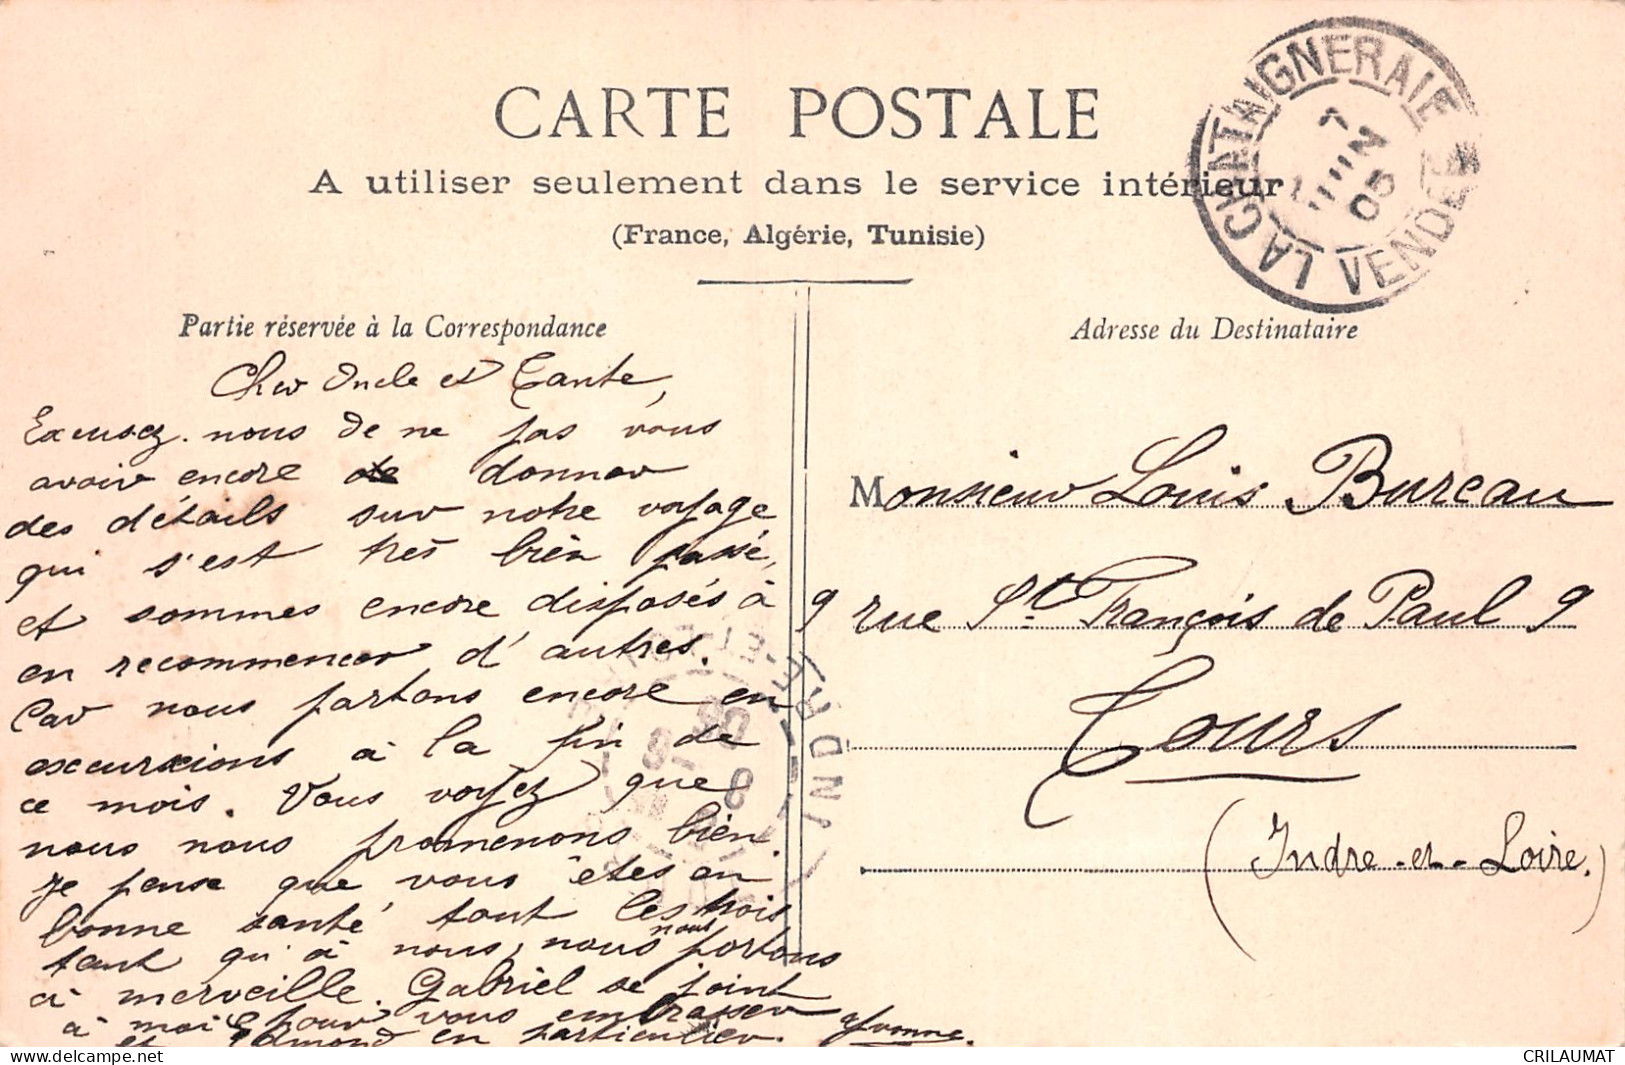 CARTE POSTALE
A utiliser seulement dans le service intérieur
(France, Algérie, Tunisie)
LA CHATAIGNERAIE
7 JUIN 05
VENDEE
Partie réservée à la Correspondance
Cher Oncle et Tante,
Excusez-nous de ne pas vous
avoir encore donner
des détails sur notre voyage
qui s'est très bien passé,
et sommes encore disposés à
en recommencer d'autres.
Car nous partons encore en
excursions à la fin de
ce mois. Vous voyez que
nous nous promenons bien.
Je pense que vous êtes en
bonne santé tout les trois
tant qu'à nous, nous nous portons
à merveille. Gabriel se joint
à moi pour vous embrasser
et Edmond en particulier. Yvonne.
Adresse du Destinataire
Monsieur Louis Bureau
9 rue St. François de Paul 9
Tours
(Indre-et-Loire.)
INDRE-ET-
CRILAUMAT